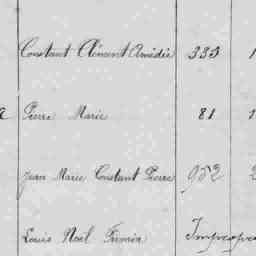 Constant Clément Amédée 333 1
Pierre Marie 81 1
Jean Marie Constant Pierre 952 2
Louis Noël Firmin